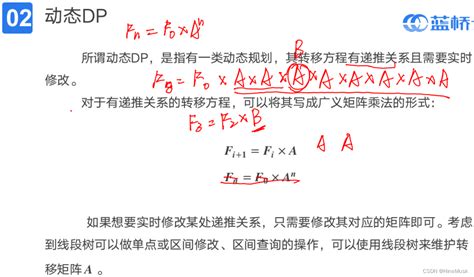 02 动态DP
Fₙ = F₀ × Aⁿ
蓝桥
B
所谓动态DP,是指有一类动态规划,其转移方程有递推关系且需要实时
修改。
F₈ = F₀ × A × A × A × A × A × A × A × A
对于有递推关系的转移方程,可以将其写成广义矩阵乘法的形式:
F₃ = F₂ × B
Fᵢ₊₁ = Fᵢ × A
A A
Fₙ = F₀ × Aⁿ
如果想要实时修改某处递推关系,只需要修改其对应的矩阵即可。考虑
到线段树可以做单点或区间修改、区间查询的操作,可以使用线段树来维护转
移矩阵A 。